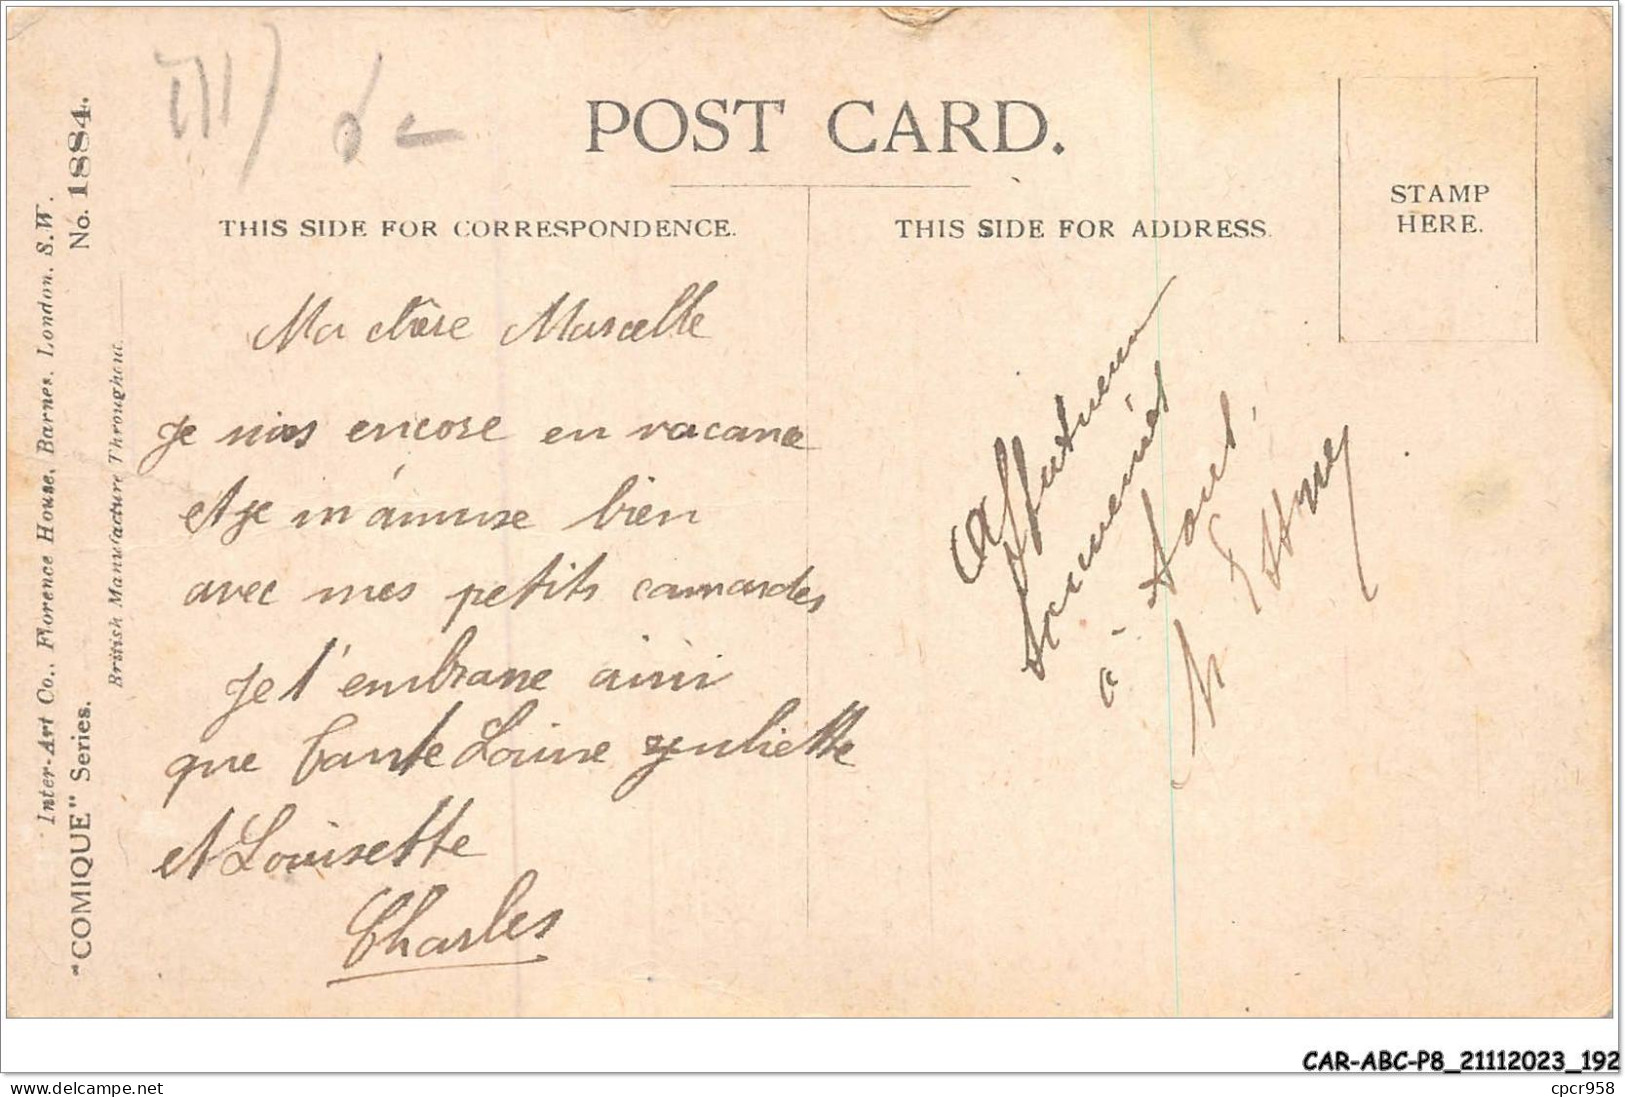 POST CARD.
THIS SIDE FOR CORRESPONDENCE.
THIS SIDE FOR ADDRESS.
STAMP
HERE.
Inter-Art Co., Florence House, Barnes, London, S.W.
"COMIQUE" Series.
No. 1884.
British Manufacture Throughout
Ma chère Marcelle
je suis encore en vacance
et je m'amuse bien
avec mes petits camarades
je t'embrasse ainsi
que tante Louise Juliette
et Louisette
Charles
Affectueux
souvenirs
à tous
CAR-ABC-P8_21112023_192
cpcr958